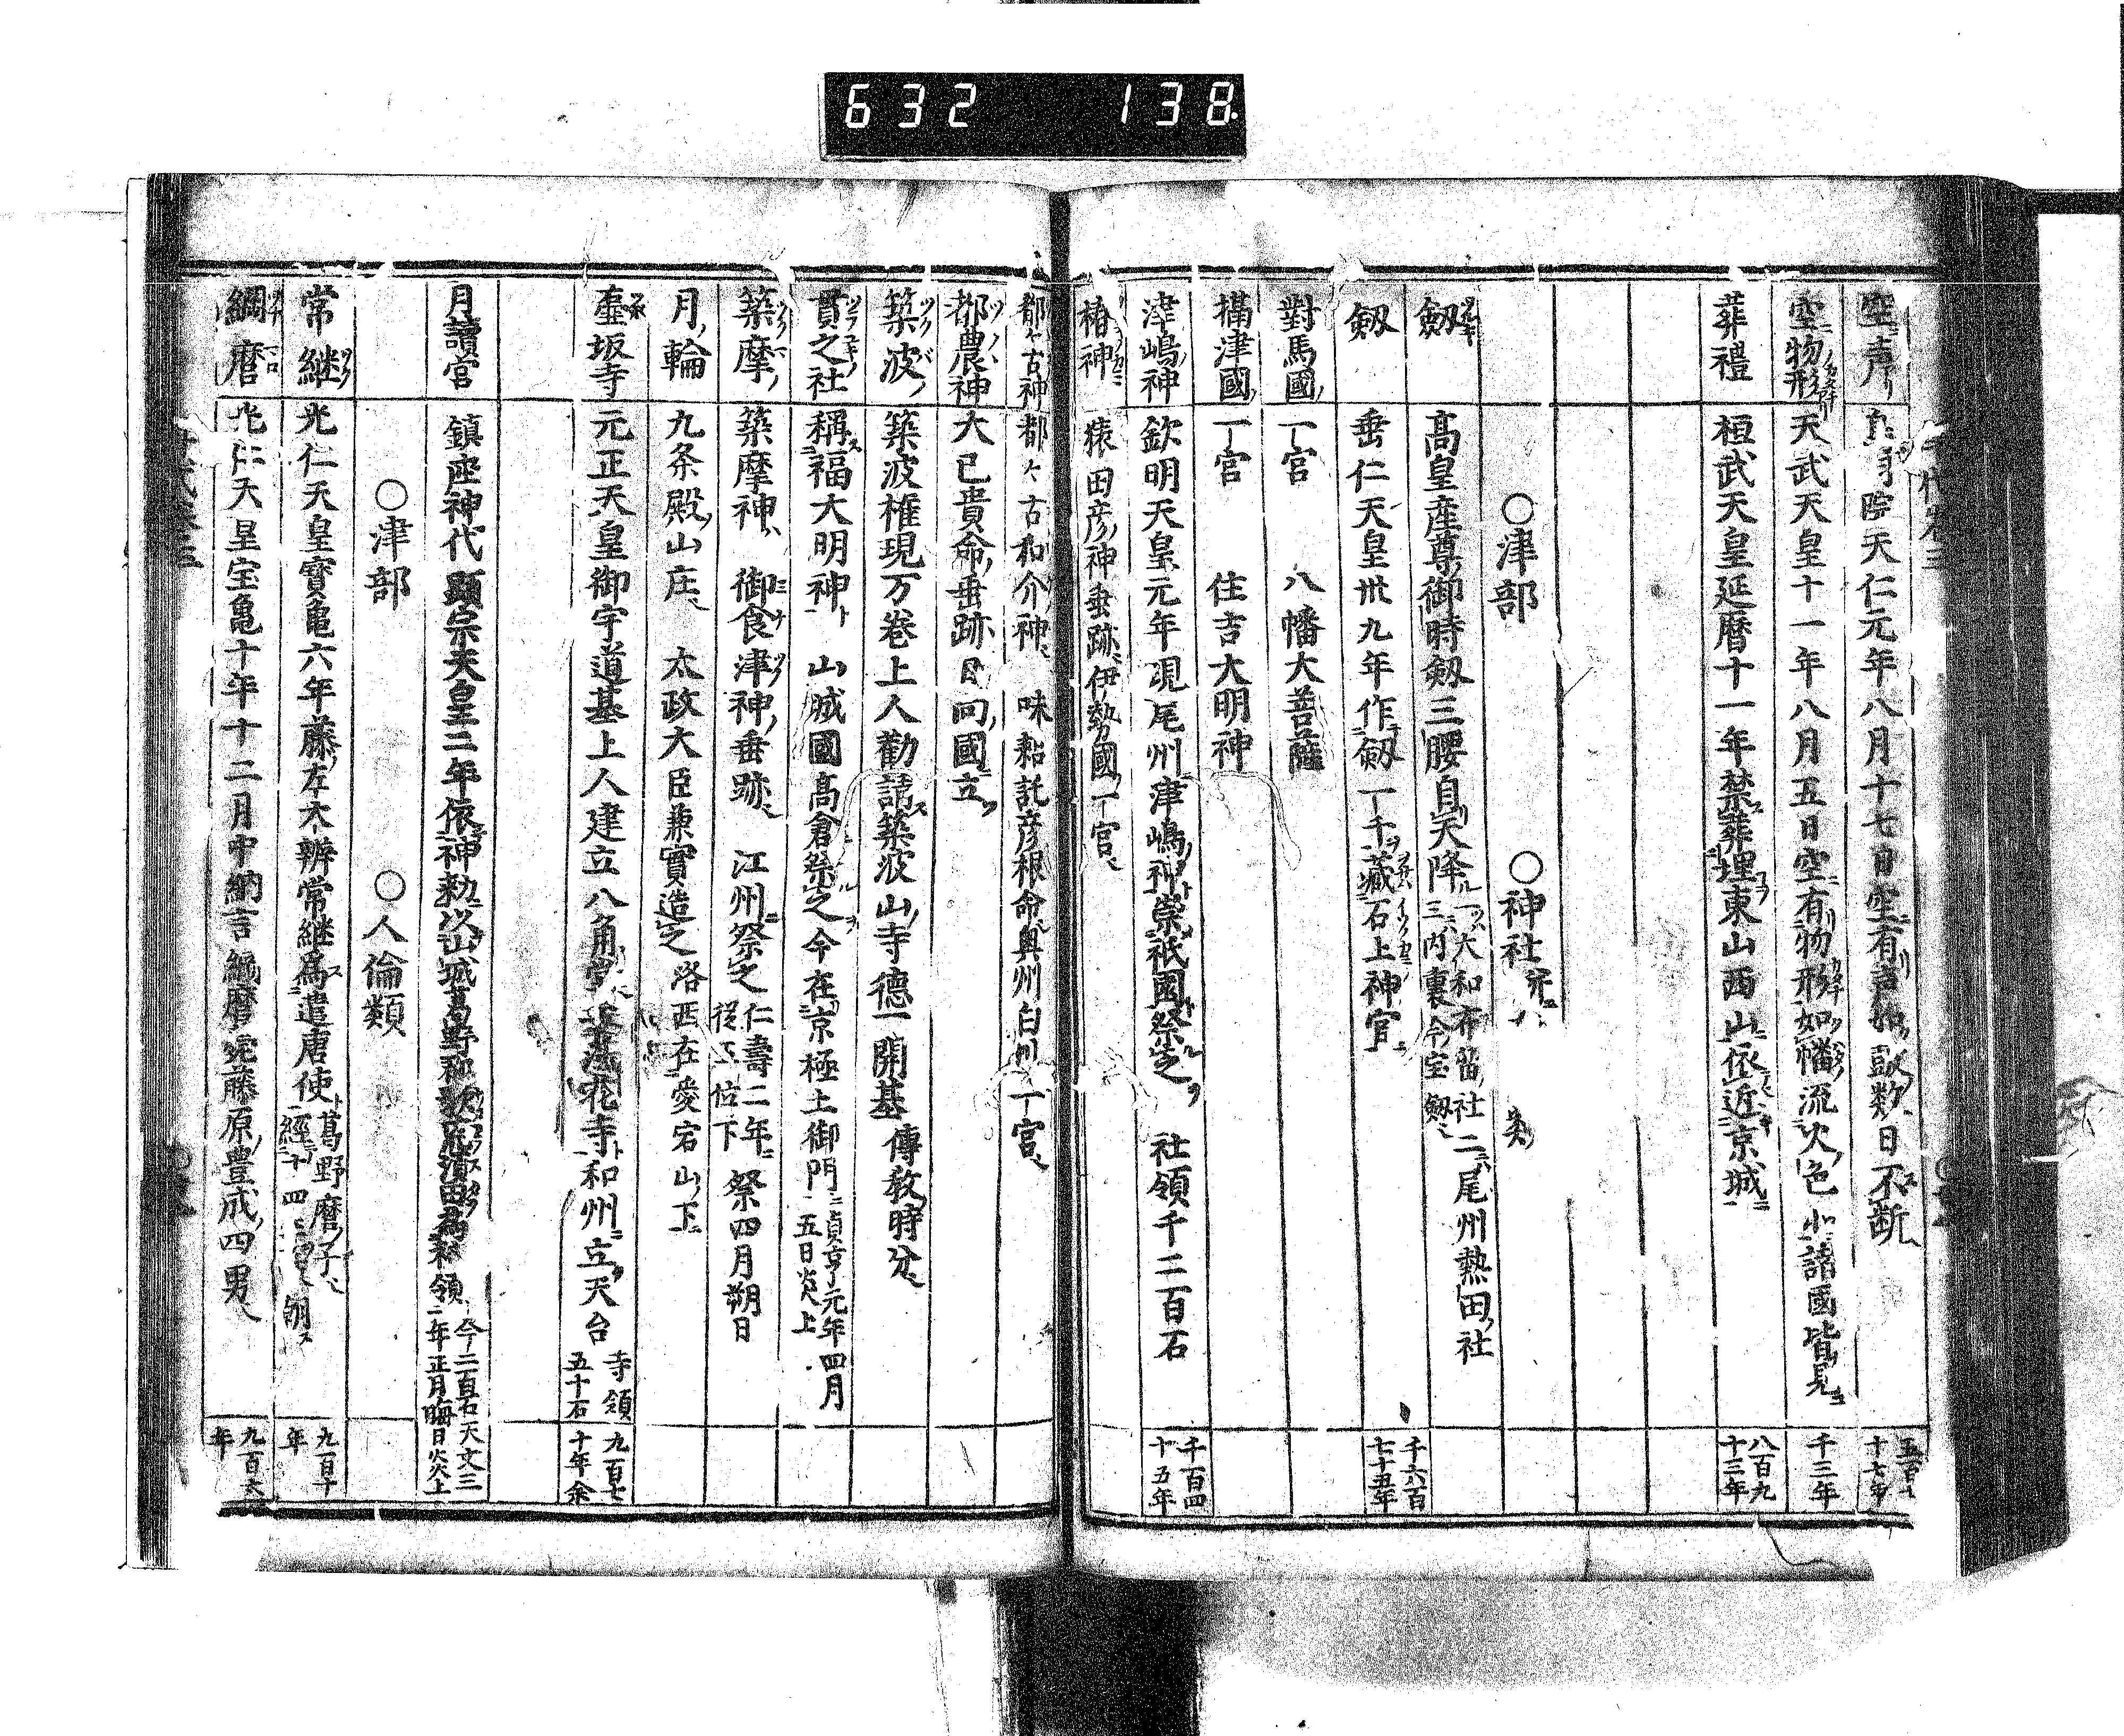 632 138
空声 鳥羽院天仁元年八月十七日空有声如鼓数日不断 五百 十七年
空物形 天武天皇十一年八月五日空有物形如幡流火色 北諸國皆見 千三年
葬禮 桓武天皇延暦十一年禁葬埋東山西山依近京城 八百九十三年
○津部 ○神社 類
劔 高皇産尊御時劔三腰自天降 一大和布留社二尾州熱田社三内裏今宝劔
劔 垂仁天皇卅九年作劔一千藏石上神宮 千六百七十五年
對馬國 一宮 八幡大菩薩
攝津國 一宮 住吉大明神
津嶋神 欽明天皇元年現尾州津嶋神崇祇園祭之 社領千二百石 千百四十五年
椿神 猿田彦神垂跡伊勢國一宮
都々古神 都々古和介神 味耜託彦根命奥州白川一宮
都農神 大已貴命垂跡日向國立
築波 築波権現万巻上人勸請築波山寺德一開基 傳教時分
貫之社 稱福大明神 山城國高倉祭之今在京極土御門 貞享元年四月五日炎上
築摩 築摩神 御食津神垂跡 江州祭之 仁壽二年 從五位下 祭四月朔日
月輪 九条殿山庄 太政大臣兼實造之 洛西在愛宕山下
壷坂寺 元正天皇御宇道基上人建立八角堂 法花寺和州立天台 寺領五十石 九百七十年余
月讀宮 鎮座神代顯宗天皇二年依神勅以山城葛野 今二百石天文三年正月晦日炎上
○津部 ○人倫類
常継 光仁天皇寳亀六年藤左大辨常継爲遣唐使 葛野麿子 九百十年
綱麿 光仁天皇宝亀十年十二月中納言縄麿薨藤原豊成四男 九百六年